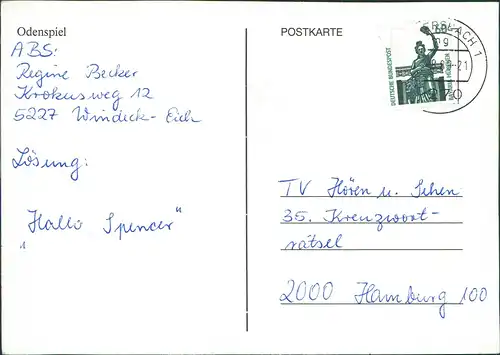 Odenspiel
ABS:
Regine Becker
Krokusweg 12
5227 Windeck-Eich
Lösung:
"Hallo Spencer"
POSTKARTE
DEUTSCHE BUNDESPOST
TV Hören u. Sehen
35. Kreuzwort-
rätsel
2000 Hamburg 100